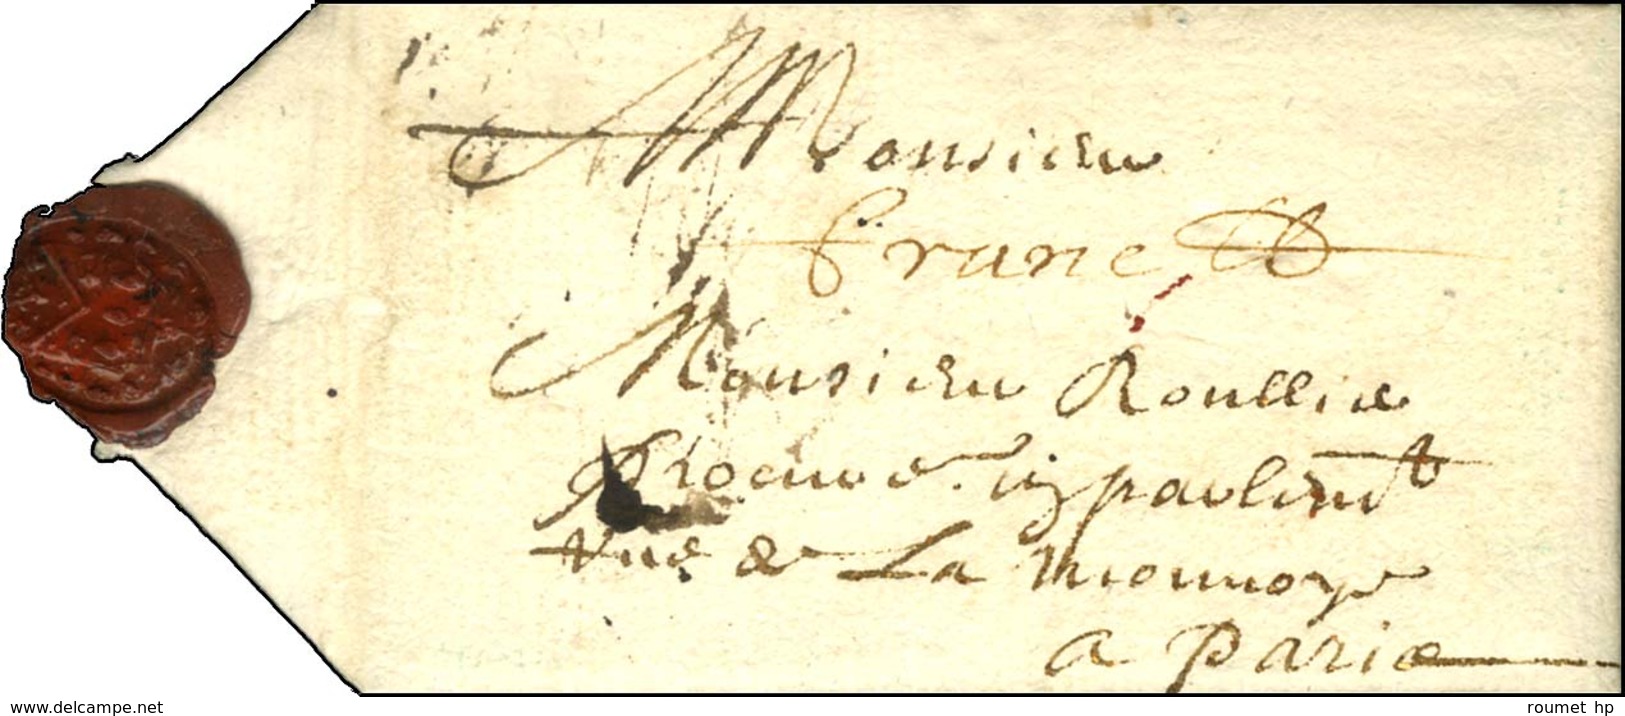 Monsieur
franc
Monsieur Roullie
procure. en parlem^t
rue de La monnoye
a Paris
www.delcampe.net
roumet hp